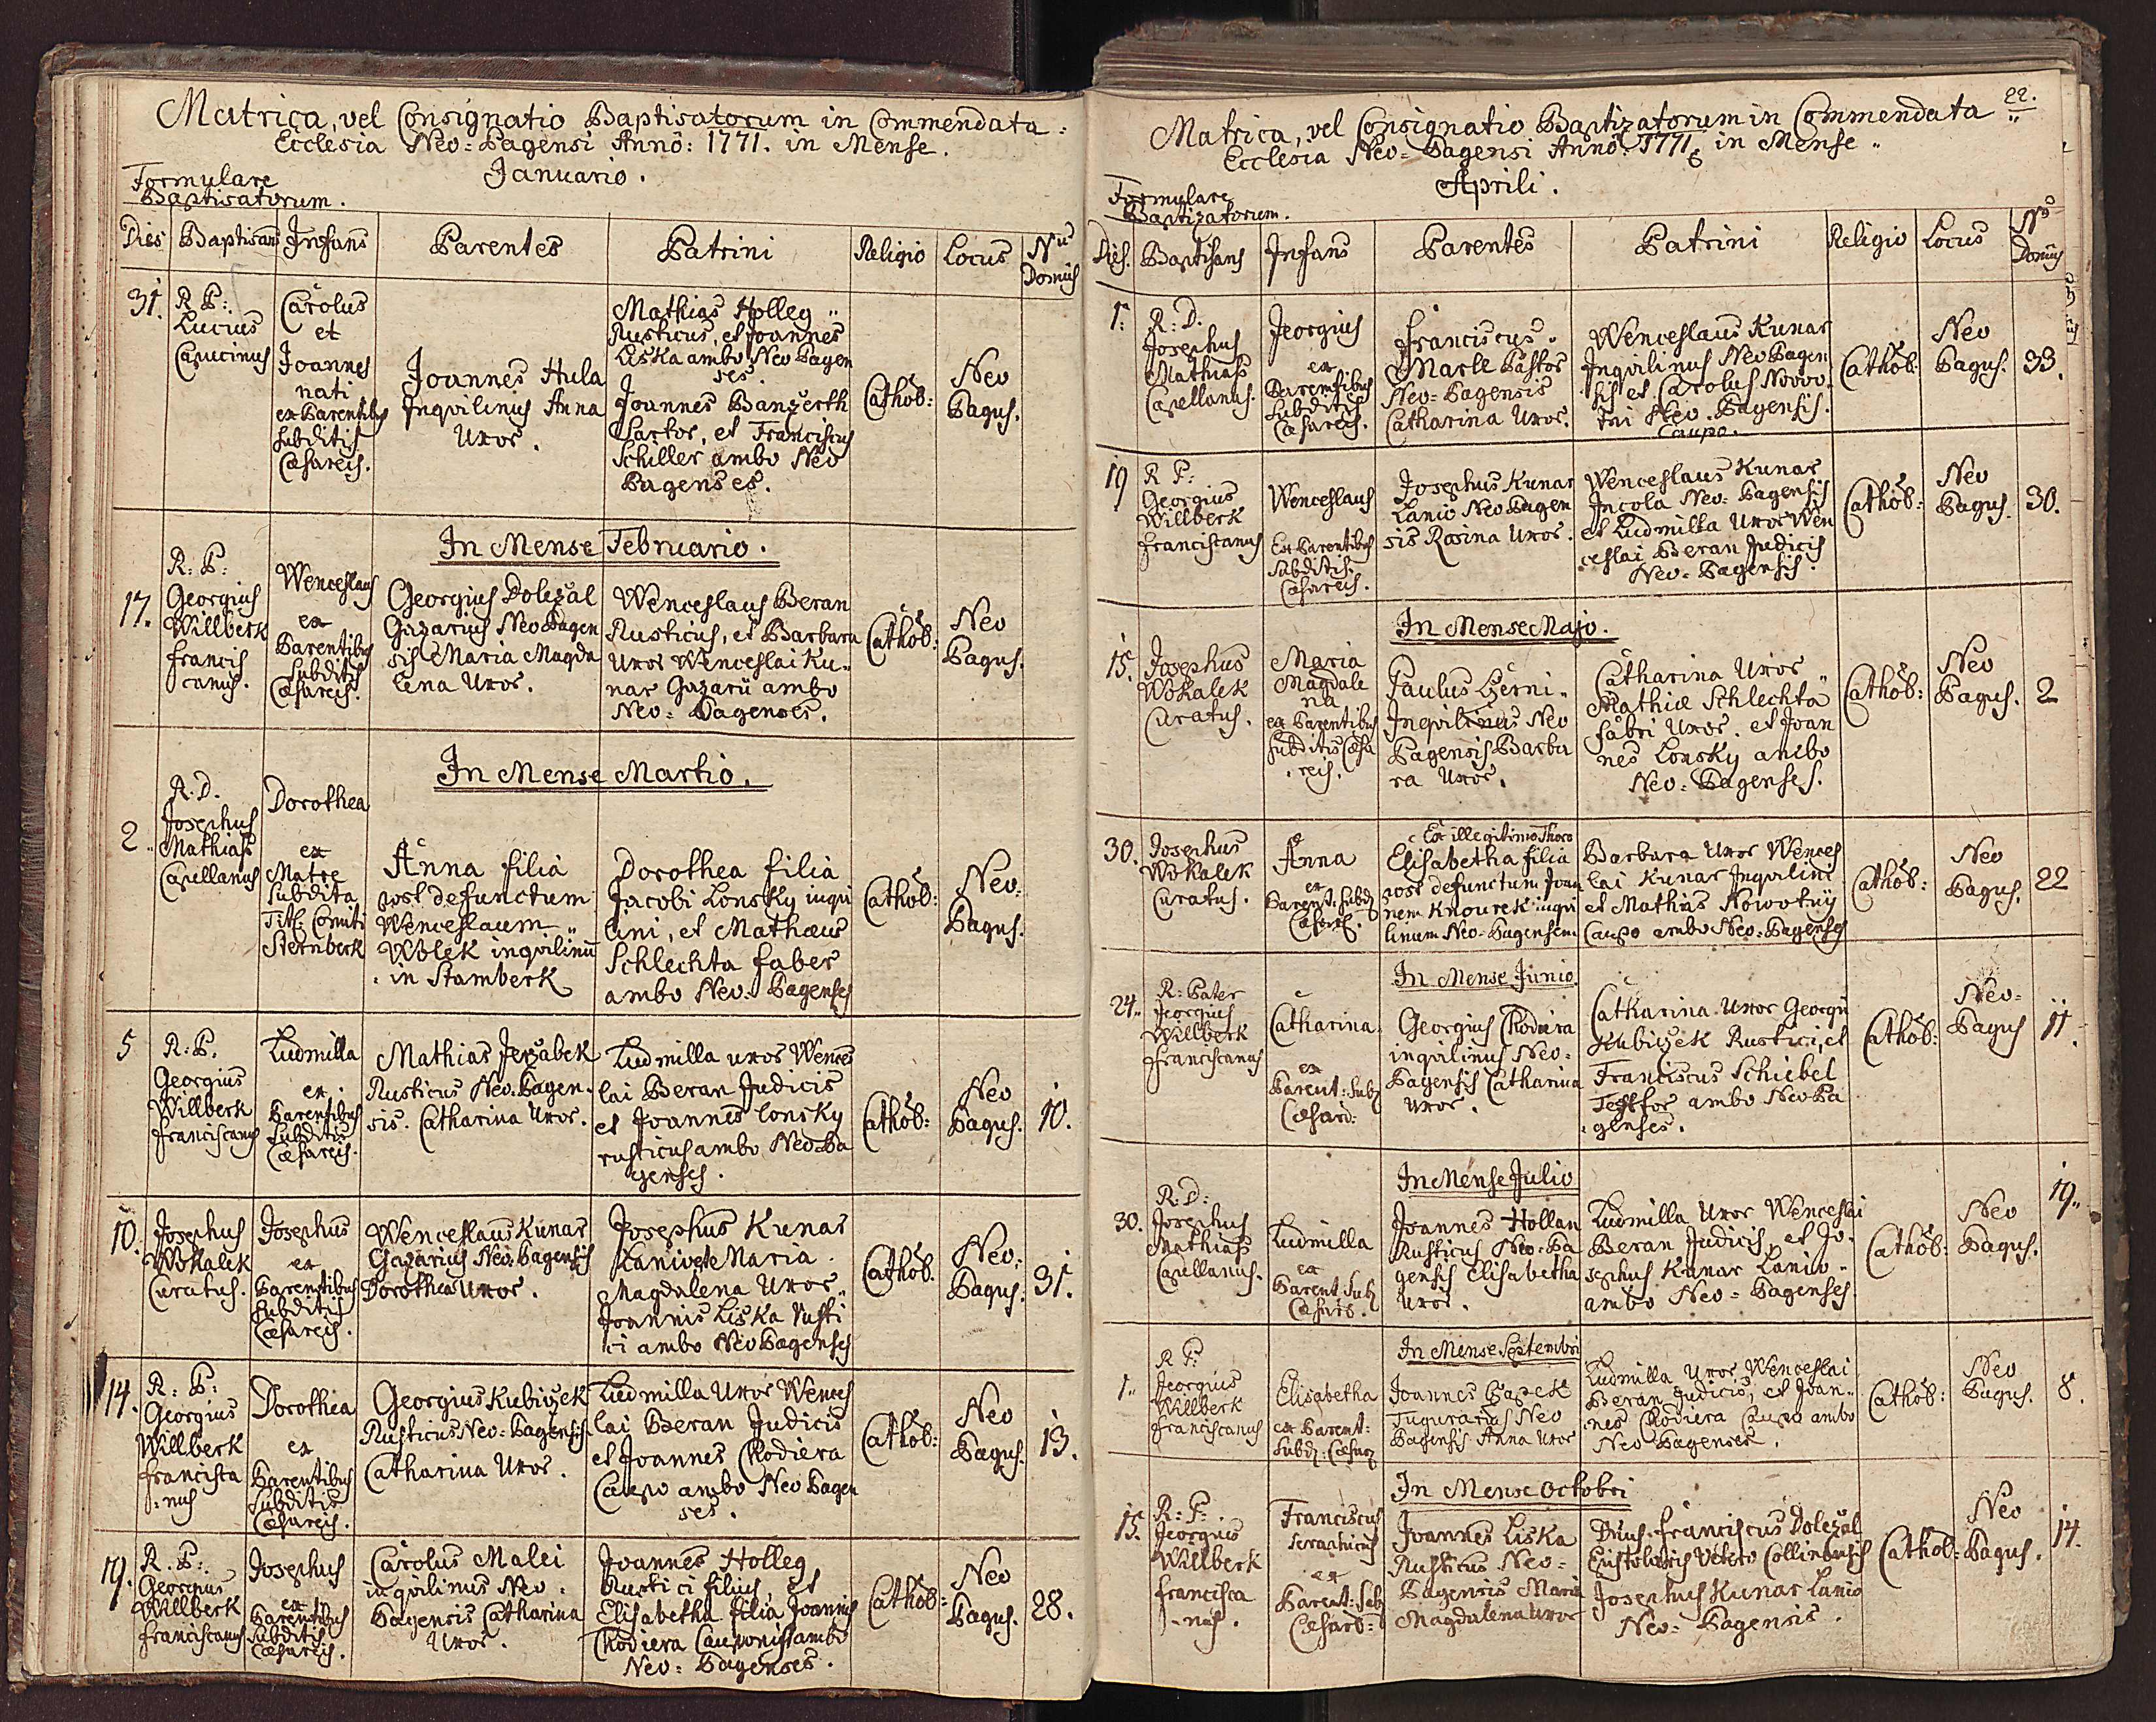 Matrica, vel Consignatio Baptisatorum in Commendata:
Ecclesia Neo=Pagensi Annô: 1771. in Mense.
Januario.
Formulare
Baptisatorum.
Dies Baptisans Infans Parentes Patrini Religio Locus Nus Domus
31.
R P:
Lucius
Capucinus
Carolus
et
Joannes
nati
ex Parentibus
Subditis
Cæsareis.
Joannes Hula
Inqvilinus Anna
Uxor.
Mathias Holleg
Rusticus, et Joannes
Liska ambo Neo Pagen
ses.
Joannes Banzerth
Sartor, et Franciscus
Schiller ambo Neo
Pagenses.
Cathol:
Neo
Pagus.
In Mense Februario.
17.
R: P:
Georgius
Willberk
Francis
canus.
Wenceslaus
ex
Parentibus
Subditis
Cæsareis.
Georgius Doleżal
Gazarius Neo Pagen
sis Maria Magda
lena Uxor.
Wenceslaus Beran
Rusticus, et Barbara
Uxor Wenceslai Ku
nar Gazarii ambo
Neo=Pagenses.
Cathol:
Neo
Pagus.
In Mense Martio.
2
R. D.
Josephus
Mathiass
Capellanus
Dorothea
ex
Matre
Subdita
Titl: Comiti
Sternberk
Anna filia
post defunctum
Wenceslaum
Wolek inqvilinū
in Stamberk
Dorothea filia
Jacobi Lonsky inqui
lini, et Mathæus
Schlechta faber
ambo Neo=Pagenses
Cathol:
Neo=
Pagus.
5
R: P.
Georgius
Willberk
Franciscanus
Ludmilla
ex
Parentibus
Subditis
Cæsareis.
Mathias Jeržabek
Rusticus Neo=Pagen
sis. Catharina Uxor.
Ludmilla uxor Wences
lai Beran Judicis
et Joannes Lonsky
rusticus ambo Neo=Pa
genses.
Cathol:
Neo
Pagus.
10.
10.
Josephus
Wokalek
Curatus.
Josephus
ex
Parentibus
Subditis
Cæsareis.
Wenceslaus Kunar
Gazarius Neo=Pagensis
Dorothea Uxor.
Josephus Kunar
Lanio et Maria
Magdalena Uxor
Joannis Liska rusti
ci ambo Neo Pagenses
Cathol.
Neo=
Pagus.
31.
14.
R: P:
Georgius
Willberk
francisca
=nus
Dorothea
ex
Parentibus
Subditis
Cæsareis.
Georgius Kubiczek
Rusticus Neo=Pagensis
Catharina Uxor.
Ludmilla Uxor Wences
lai Beran Judicis
et Joannes Chodiera
Caupo ambo Neo Pagen
ses.
Cathol:
Neo
Pagus.
13.
19.
R. P:
Georgius
Willberk
franciscanus
Josephus
ex
Parentibus
Subditis
Cæsareis.
Carolus Malei
inqvilinus Neo=
Pagensis Catharina
Uxor.
Joannes Holleg
Rustici filius, et
Elisabetha filia Joannis
Chodiera Cauponis ambo
Neo=Pagenses.
Cathol:
Neo
Pagus.
28.
22.
Matrica, vel Consignatio Baptizatorum in Commendata
Ecclesia Neo=Pagensi Annô: 1771 in Mense
Aprili.
Formulare
Baptizatorum.
Dies. Baptisans Infans Parentes Patrini Religio Locus No Domus
1.
R: D.
Josephus
Mathiass
Capellanus.
Georgius
ex
Parentibus
Subditis
Cæsareis.
Franciscus
Marle Pastor
Neo=Pagensis
Catharina Uxor.
Wenceslaus Kunar
Inqvilinus Neo Pagen
sis et Carolus Novo
tni Neo=Pagensis.
Caupo.
Cathol:
Neo
Pagus.
33.
19
R P:
Georgius
Willberk
franciscanus
Wenceslaus
Ex Parentibus
Subditis
Cæsareis.
Josephus Kunar
Lanio Neo Pagen
sis Rosina Uxor.
Wenceslaus Kunar
Incola Neo=Pagensis
et Ludmilla Uxor Wen
ceslai Beran Judicis
Neo=Pagensis.
Cathol:
Neo
Pagus.
30.
In Mense Majo.
15.
Josephus
Wokalek
Curatus.
Maria
Magdale
na
ex Parentibus
Subditis Cæsa
reis.
Paulus Czerni
Inqvilinus Neo
Pagensis Barba
ra Uxor.
Catharina Uxor
Mathiæ Schlechta
fabri Uxor. et Joan
nes Lonsky ambo
Neo=Pagenses.
Cathol:
Neo
Pagus.
2
30.
Josephus
Wokalek
Curatus.
Anna
ex
Parent: Subd
Cæsar.
Ex illegitimo Thoro
Elisabetha filia
post defunctum Joan
nem Knourek inqvi
linum Neo=Pagensem
Barbara Uxor Wences
lai Kunar Inqvilini
et Mathias Nowotny
Caupo ambo Neo=Pagenses
Cathol:
Neo
Pagus.
22
In Mense Junio.
24.
R: Pater
Georgius
Willberk
Franciscanus
Catharina
ex
Parent: Sub
Cæsar:
Georgius Chodiera
inqvilinus Neo=
Pagensis Catharina
Uxor.
Catharina Uxor Georgii
Kubiczek Rustici, et
Franciscus Schiebel
Textor ambo Neo Pa
genses.
Cathol:
Neo=
Pagus
11.
In Mense Julio
30.
R: D:
Josephus
Mathiass
Capellanus.
Ludmilla
ex
Parent. Sub
Cæsar.
Joannes Hollan
Rusticus Neo=Pa
gensis Elisabetha
Uxor.
Ludmilla Uxor Wenceslai
Beran Judicis, et Jo=
sephus Kunar Lanio
ambo Neo=Pagenses
Cathol:
Neo
Pagus.
19.
In Mense Septembri
1.
R P:
Georgius
Willberk
Franciscanus
Elisabetha
ex Parent:
Subd: Cæsar
Joannes Czapek
Tugurarius Neo
Pagensis Anna Uxor
Ludmilla Uxor Wenceslai
Beran Judicis, et Joan
nes Chodiera Caupo ambo
Neo Pagenses.
Cathol:
Neo
Pagus.
8.
In Mense Octobri
15.
R: P:
Georgius
Willberk
francisca
=nus.
Franciscus
Seraphicus
ex
Parent: Sub
Cæsar=
Joannes Liska
Rusticus Neo=
Pagensis Maria
Magdalena Uxor
Dnus. Franciscus Doležal
Josephus Kunar Lanio
Neo=Pagensis.
Cathol:
Neo
Pagus.
14.